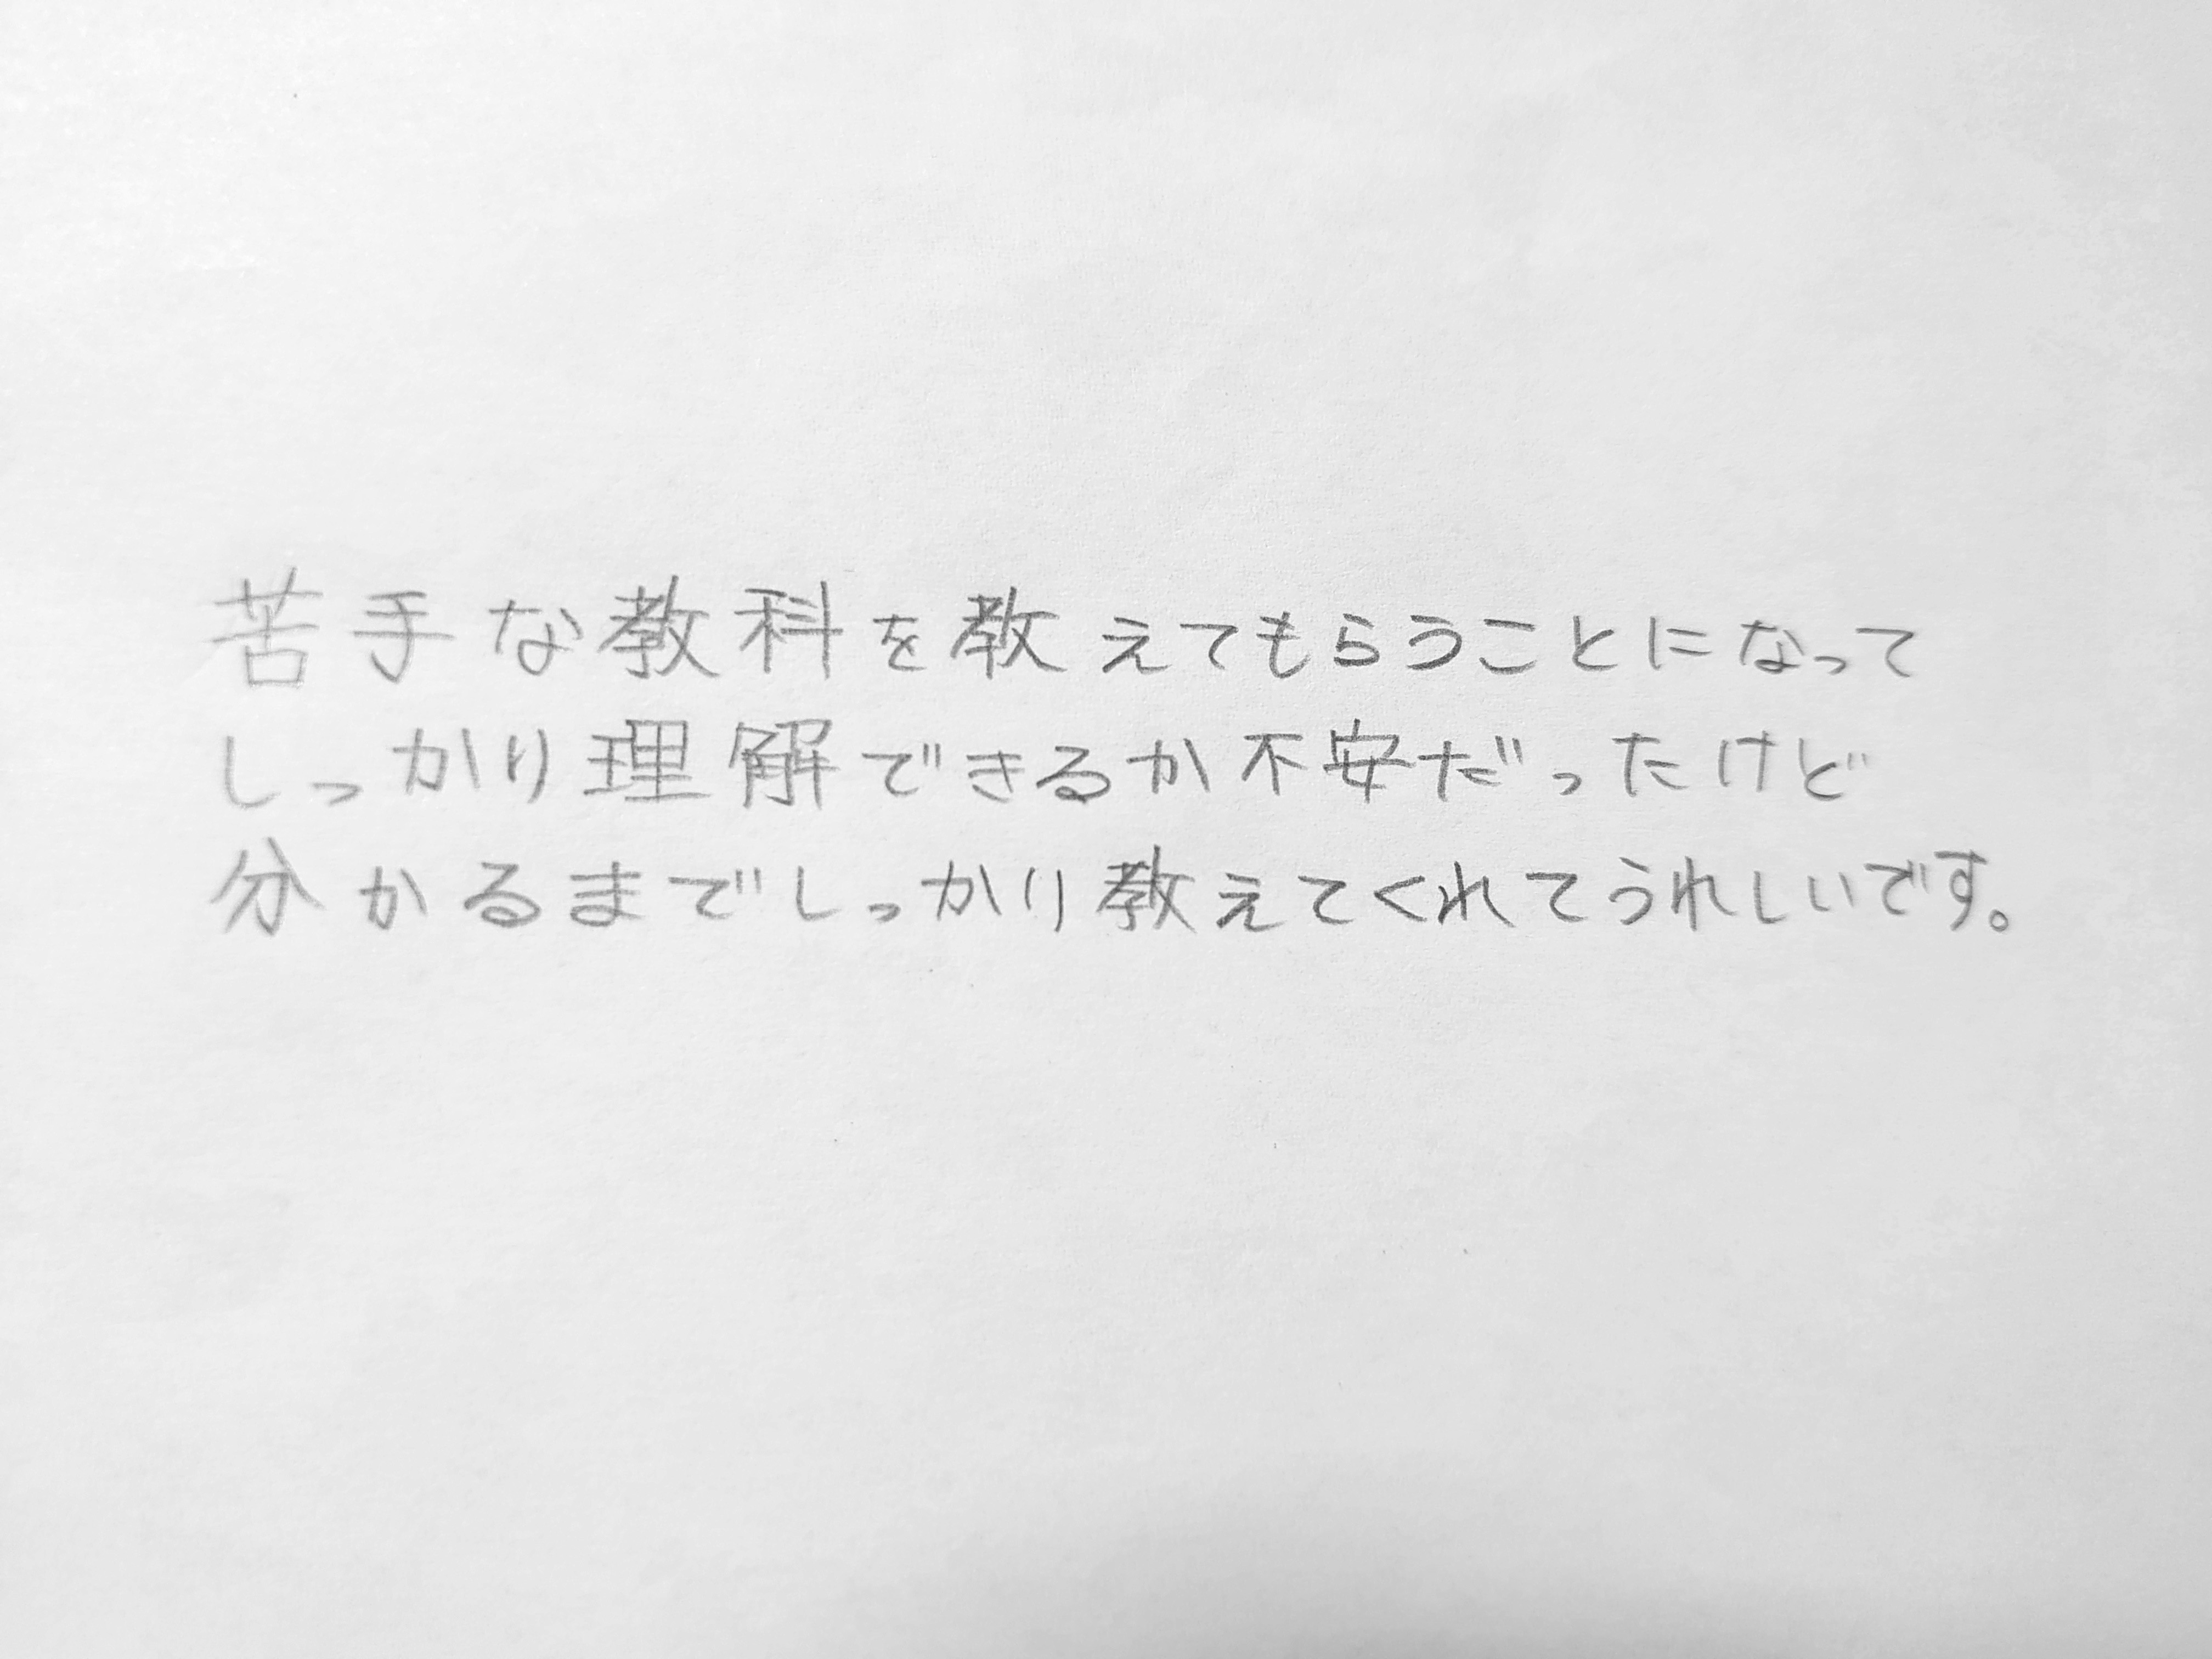 苦手な教科を教えてもらうことになって
しっかり理解できるか不安だったけど
分かるまでしっかり教えてくれてうれしいです。